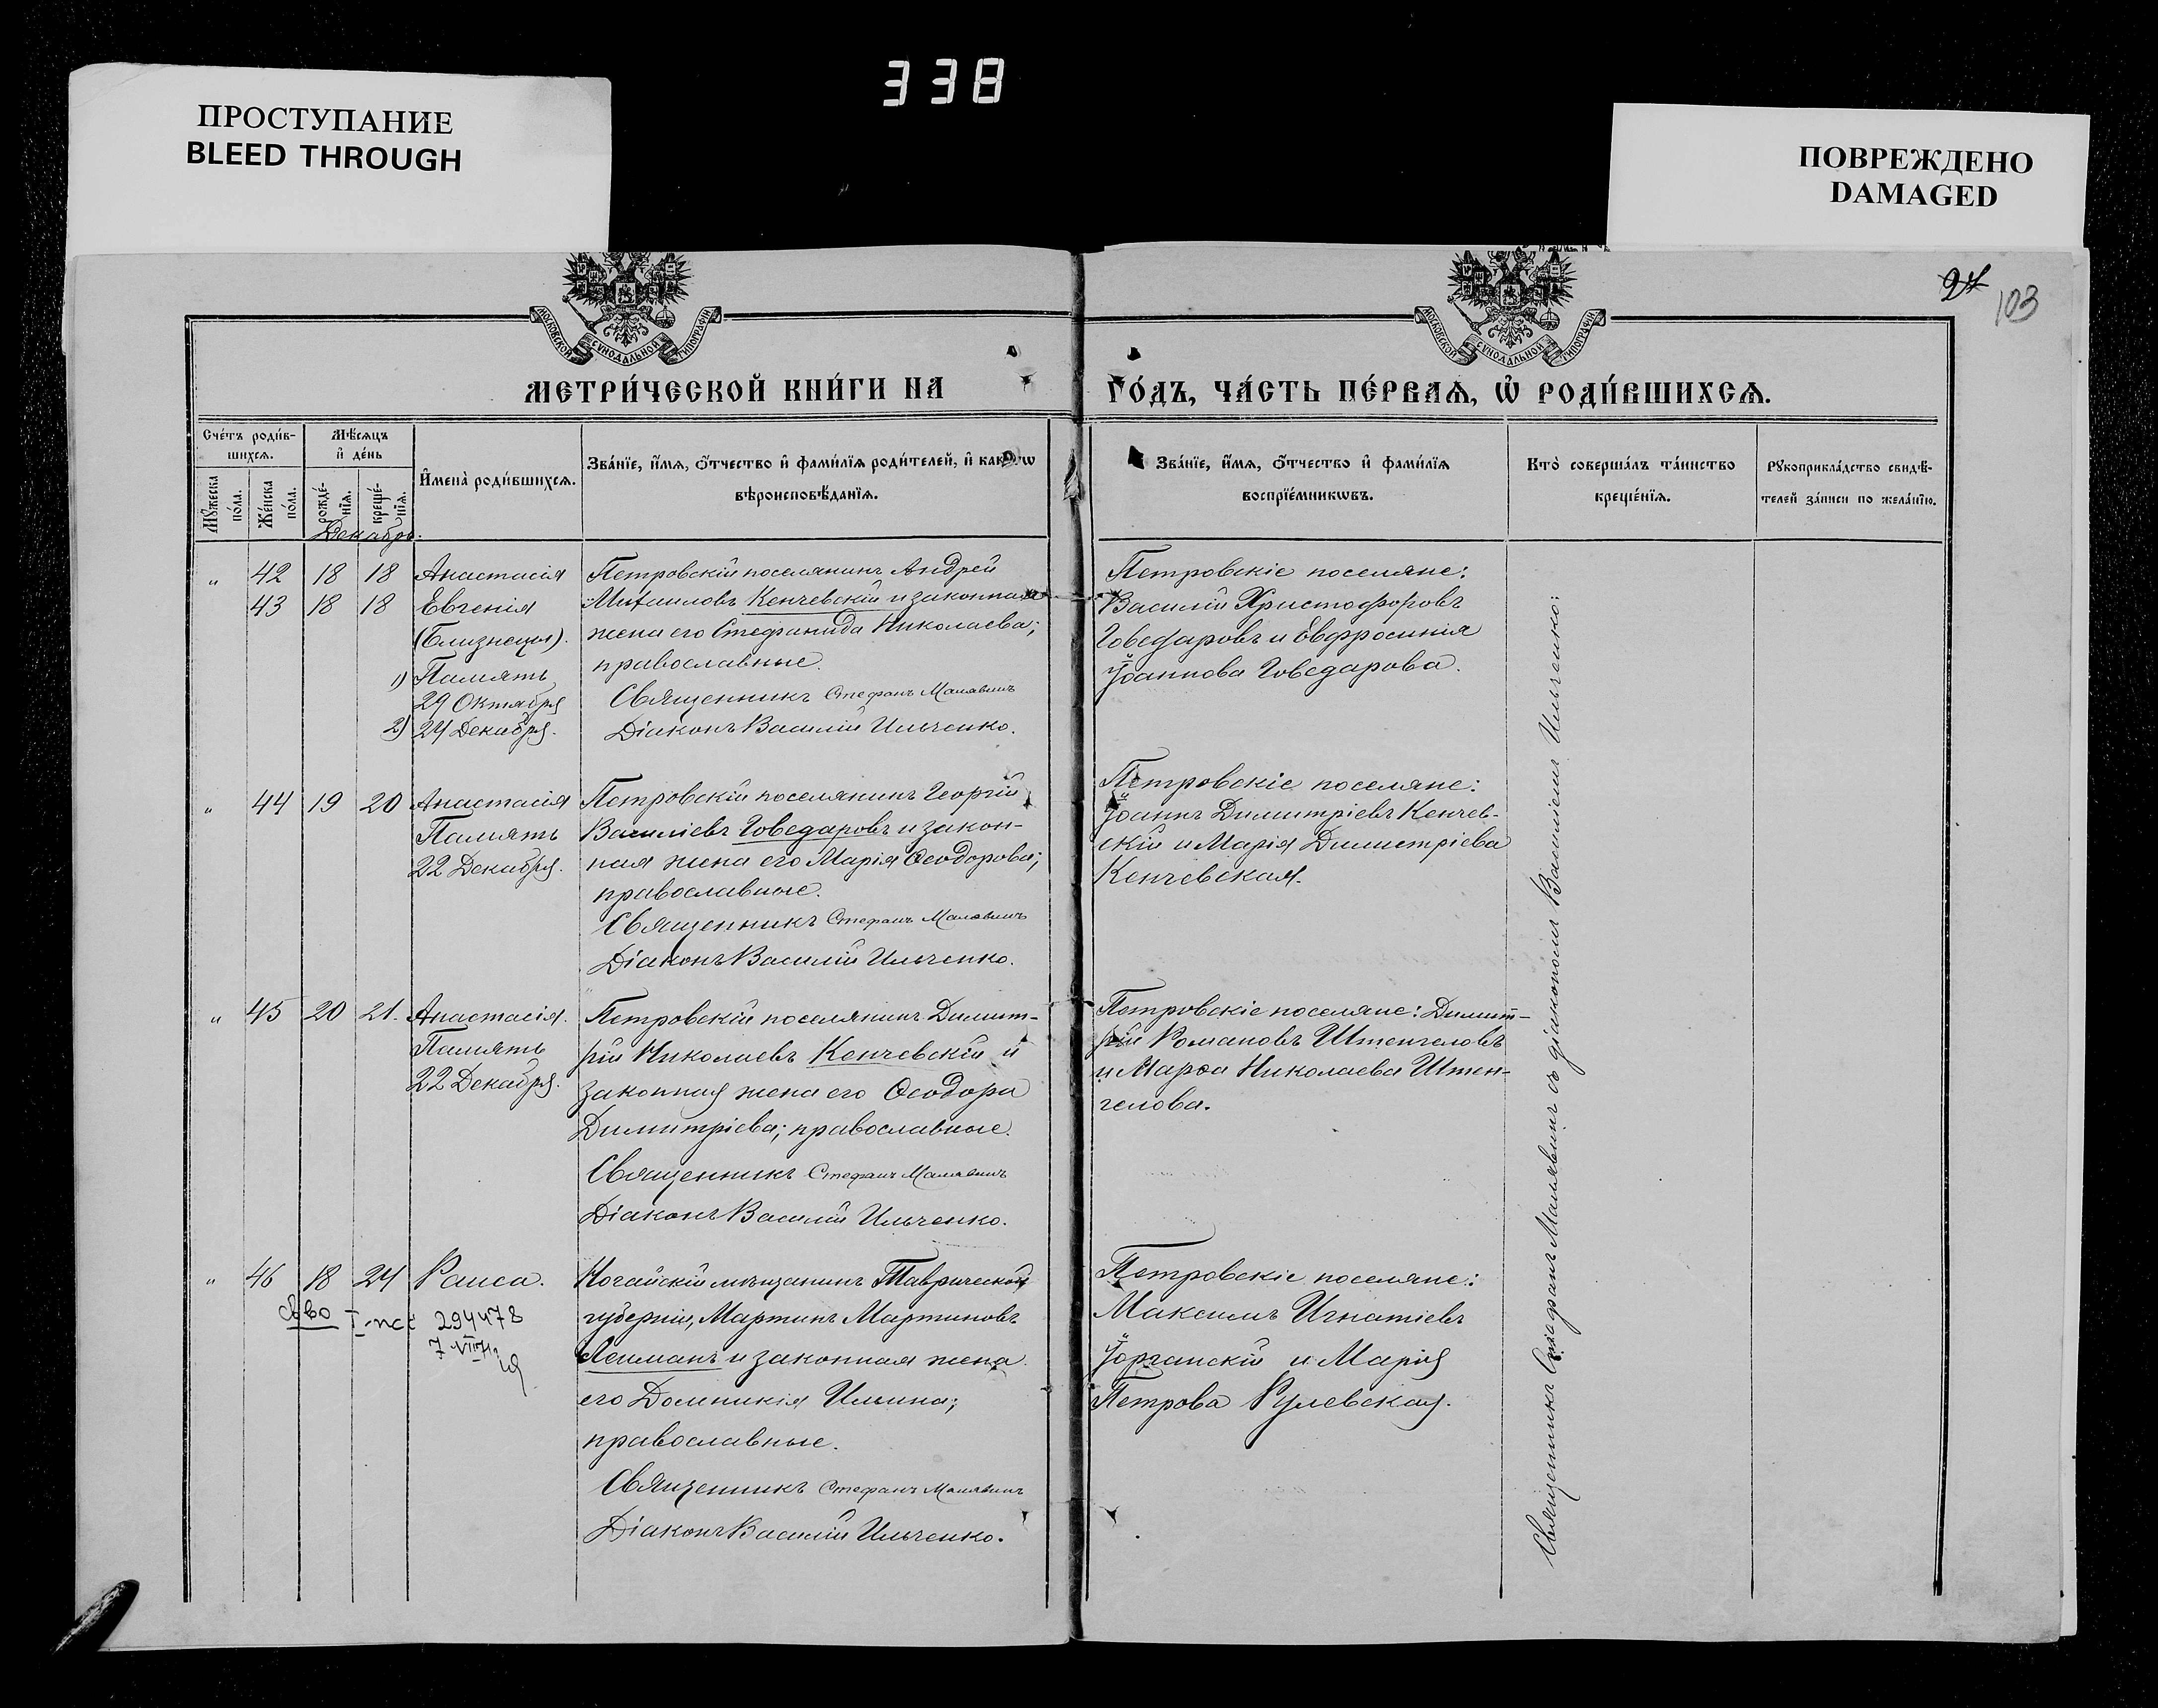 338
ПРОСТУПАНИЕ
BLEED THROUGH
ПОВРЕЖДЕНО
DAMAGED
24
103
МОСКОВСКОЙ СУНОДАЛЬНОЙ ТИПОГРАФІИ
МОСКОВСКОЙ СУНОДАЛЬНОЙ ТИПОГРАФІИ
МЕТРИ́ЧЕСКОЙ КНИ́ГИ НА
ГО́ДЪ, ЧА́СТЬ ПЕ́РВАѦ, Ѡ҆ РОДИ́ВШИХСѦ.
Сче́тъ роди́в-
шихсѧ.
Мѣ́сѧцъ
и҆ де́нь
И҆мена̀ роди́вшихсѧ.
Зва́нїе, и҆́мѧ, ѻ҆́тчество и҆ фами́лїѧ роди́телей, и҆ како́гѡ
вѣроисповѣ́данїѧ.
Зва́нїе, и҆́мѧ, ѻ҆́тчество и҆ фами́лїѧ
воспрїе́мникѡвъ.
Кто̀ соверша́лъ та́инство
креще́нїѧ.
Рꙋкоприкла́дство свидѣ́-
телей за́писи по жела́нїю.
Мꙋ́жеска
по́ла.
Же́нска
по́ла.
рожде́-
нїѧ.
креще́-
нїѧ.
Декабрь.
" 42 18 18 Анастасія
43 18 18 Евгенія
(Близнецы).
1) Память
29 Октября
2) 24 Декабря.
Петровскій поселянинъ Андрей
Михаиловъ Кенчевскій и законная
жена его Стефанида Николаева;
православные.
Священникъ Стефанъ Малявинъ
Діаконъ Василій Ильченко.
Петровскіе поселяне:
Василій Христофоровъ
Говедаровъ и Евфросинія
Іоаннова Говедарова.
" 44 19 20 Анастасія
Память
22 Декабря.
Петровскій поселянинъ Георгій
Василіевъ Говедаровъ и закон-
ная жена его Марія Ѳеодорова;
православные.
Священникъ Стефанъ Малявинъ
Діаконъ Василій Ильченко.
Петровскіе поселяне:
Іоаннъ Димитріевъ Кенчев-
скій и Марія Димитріева
Кенчевская.
" 45 20 21. Анастасія.
Память
22 Декабря.
Петровскій поселянинъ Димит-
рій Николаевъ Кенчевскій и
законная жена его Ѳеодора
Димитріева; православные.
Священникъ Стефанъ Малявинъ
Діаконъ Василій Ильченко.
Петровскіе поселяне: Димит-
рій Романовъ Штенгеловъ
и Марѳа Николаева Штен-
гелова.
" 46 18 24 Раиса.
294478
Ногайскій мѣщанинъ Таврической
губерніи, Мартинъ Мартиновъ
Лейманъ и законная жена
его Домникія Ильина;
православные.
Священникъ Стефанъ Малявинъ
Діаконъ Василій Ильченко.
Петровскіе поселяне:
Максимъ Игнатіевъ
Іорганскій и Марія
Петрова Рулевская.
Священникъ Стефанъ Малявинъ съ діакономъ Василіемъ Ильченко.